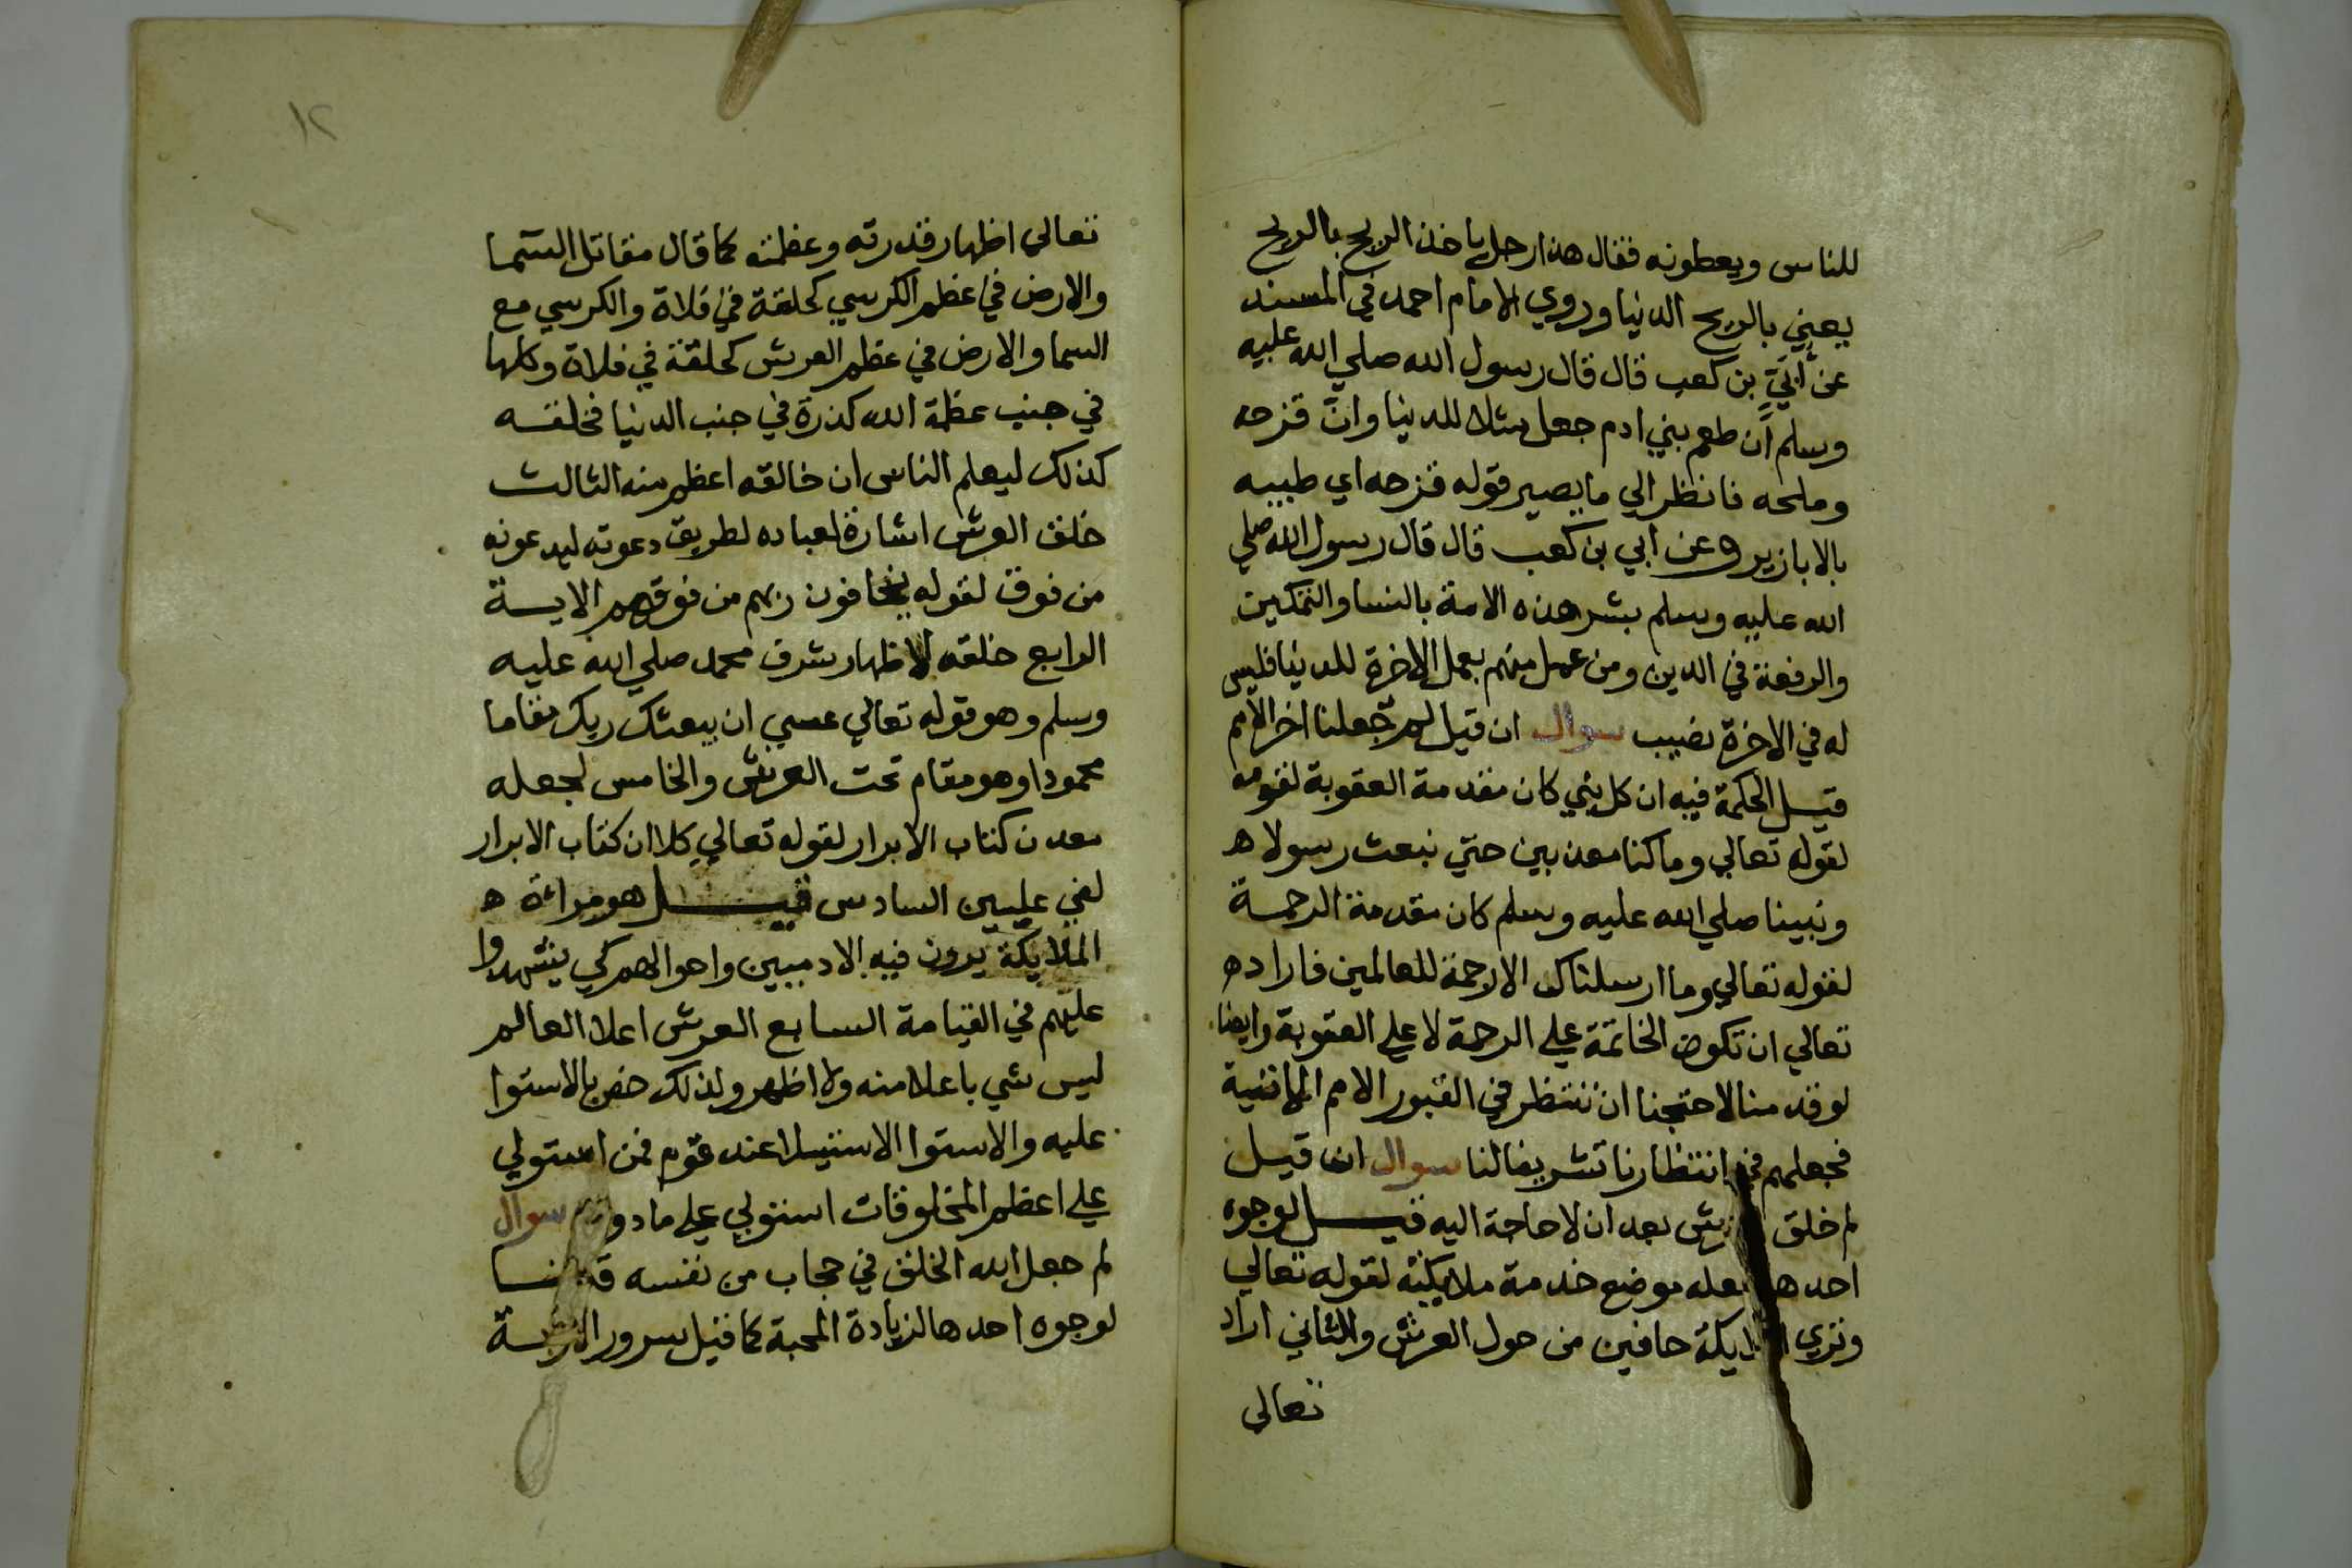 للناس ويعطونه فقال هذا رجل ياخذ الريح بالريح
يعني بالريح الدنيا وروي الامام احمد في المسند
عن أُبَيّ بن كعب قال قال رسول الله صلي الله عليه
وسلم أن طعم بني ادم جعل مثلا للدنيا وانّ قزحه
وملحه فانظر الي ما يصير قوله قزحه اي طيبه
بالابازير وعن ابي بن كعب قال قال رسول الله صلي
الله عليه وسلم بشر هذه الامة بالسنا والتمكين
والرفعة في الدين ومن عمل منهم بعمل الاخرة للدنيا فليس
له في الاخرة نصيب سوال ان قيل لم جعلنا اخر الامم
قيل الحكمة فيه ان كل نبي كان مقدمة العقوبة لقومه
لقوله تعالي وما كنا معذبين حتي نبعث رسولا ه
ونبينا صلي الله عليه وسلم كان مقدمة الرحمة
لقوله تعالي وما ارسلناك الا رحمة للعالمين فاراد ه
تعالي ان تكون الخاتمة علي الرحمة لا علي العقوبة وايضا
لو قدمنا لاحتجنا ان ننتظر في القبور الامم الاتية
فجعلهم في انتظارنا تشريفا لنا سوال ان قيل
لم خلق بعد ان لا حاجة اليه قيل لوجوه
احدها موضع خدمة ملايكته لقوله تعالي
وتري حافين من حول العرش والثاني اراد
تعالي
١٢
تعالي اظهار قدرته وعظمته كما قال مقاتل السما
والارض في عظم الكرسي كحلقة في فلاة والكرسي مع
السما والارض في عظم العرش كحلقة في فلاة وكلها
في جنب عظمة الله كذرة في جنب الدنيا فخلقه
كذلك ليعلم الناس ان خالقه اعظم منه الثالث
خلق العرش اشارة لعباده لطريق دعوته ليدعونه
من فوق لقوله يخافون ربهم من فوقهم الاية
الرابع خلقه لاظهار شرف محمد صلي الله عليه
وسلم وهو قوله تعالي عسي ان يبعثك ربك مقاما
محمودا وهو مقام تحت العرش والخامس لجعله
معدن كتاب الابرار لقوله تعالي كلا ان كتاب الابرار
لفي عليين السادس قيل هو مراة ه
الملايكة يرون فيه الادميين واحوالهم كي يشهدوا
عليهم في القيامة السابع العرش اعلا العالم
ليس شي باعلا منه ولا اظهر ولذلك خص بالاستوا
عليه والاستوا الاستيلا عند قوم فمن استولي
علي اعظم المخلوقات استولي علي ما دونه سوال
لم جعل الله الخلق في حجاب من نفسه قلنا
لوجوه احدها لزيادة المحبة كما قيل سرور